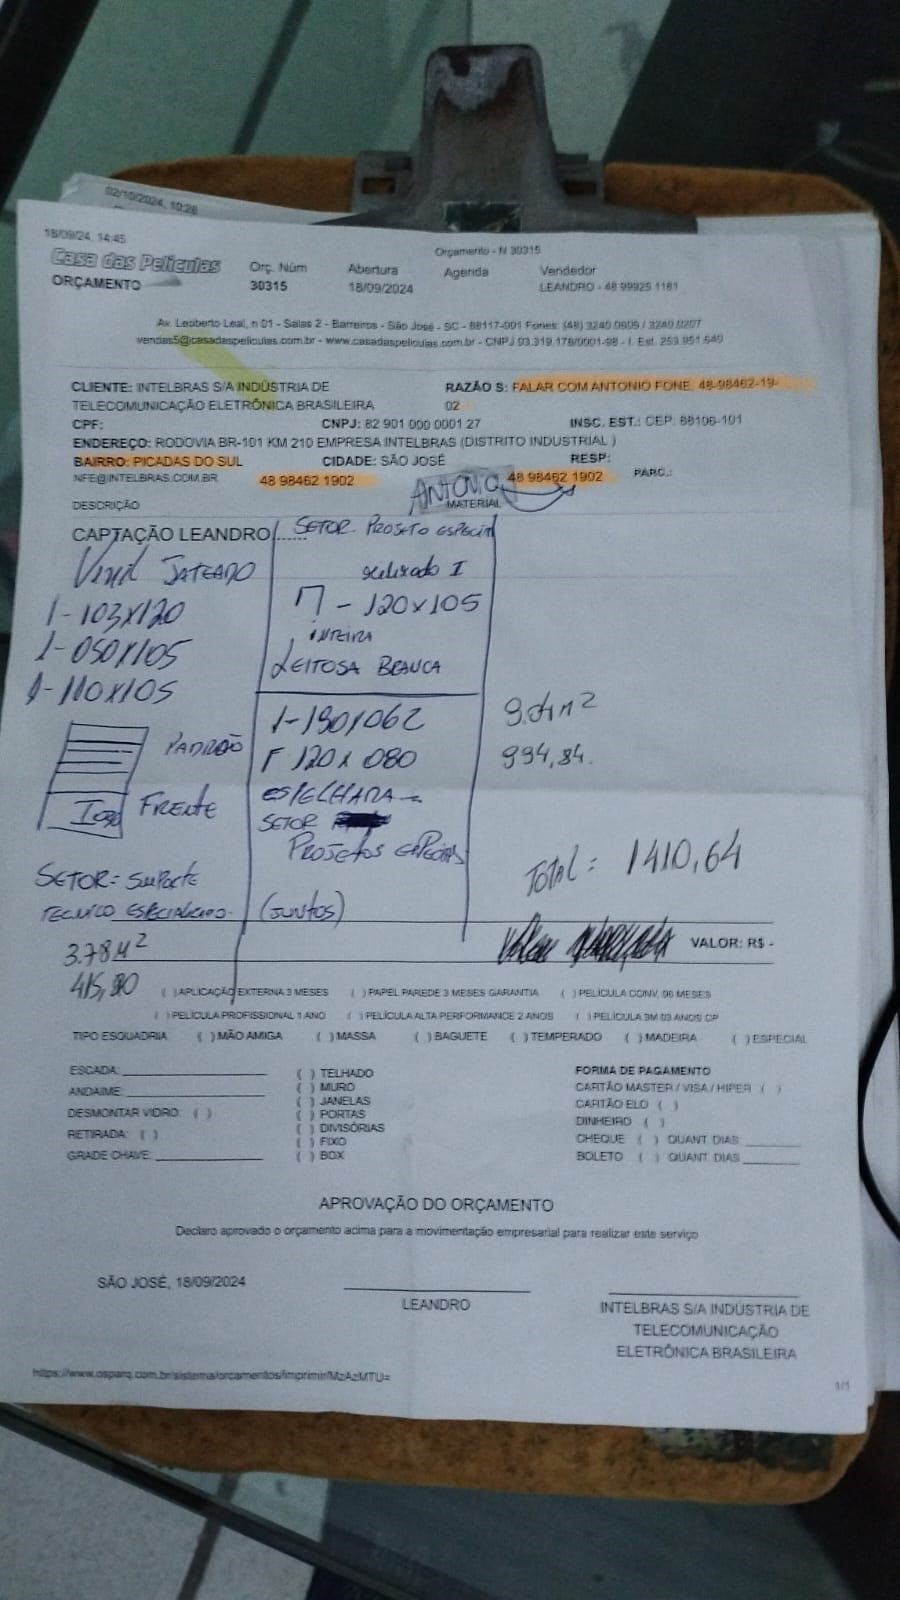 02/10/2024, 10:26
18/09/24, 14:45
Orçamento - N 30315
Casa das Películas
ORÇAMENTO
Orç. Núm
30315
Abertura
18/09/2024
Agenda
Vendedor
LEANDRO - 48 99925 1181
Av. Leoberto Leal, n 01 - Salas 2 - Barreiros - São José - SC - 88117-001 Fones: (48) 3240.0606 / 3240.0207
vendas5@casadaspeliculas.com.br - www.casadaspeliculas.com.br - CNPJ 03.319.178/0001-98 - I. Est. 253.951.640
CLIENTE: INTELBRAS S/A INDÚSTRIA DE
TELECOMUNICAÇÃO ELETRÔNICA BRASILEIRA
RAZÃO S: FALAR COM ANTONIO FONE: 48-98462-19-
02
CPF:
CNPJ: 82 901 000 0001 27
INSC. EST.: CEP: 88106-101
ENDEREÇO: RODOVIA BR-101 KM 210 EMPRESA INTELBRAS (DISTRITO INDUSTRIAL )
BAIRRO: PICADAS DO SUL
CIDADE: SÃO JOSÉ
RESP:
NFE@INTELBRAS.COM.BR
48 98462 1902
ANTONIO
48 98462 1902
PARC.:
DESCRIÇÃO
MATERIAL
CAPTAÇÃO LEANDRO......
Vinil JATEADO
1-103x120
1-050x105
1-110x105
PADRÃO
FRENTE
SETOR= SUPORTE
TECNICO ESPECIALIZADO.
3.78M²
415,80
SETOR- PROJETO ESPECIAL
- 120x105
INTEIRA
LEITOSA BRANCA
1-190x062
120x080
ESPELHADA
SETOR
PROJETOS ESPECIAIS
(JUNTOS)
994,84.
TOTAL = 1410,64
VALOR: R$ -
( ) APLICAÇÃO EXTERNA 3 MESES ( ) PAPEL PAREDE 3 MESES GARANTIA ( ) PELÍCULA CONV. 06 MESES
( ) PELÍCULA PROFISSIONAL 1 ANO ( ) PELÍCULA ALTA PERFORMANCE 2 ANOS ( ) PELÍCULA 3M 03 ANOS CP
TIPO ESQUADRIA ( ) MÃO AMIGA ( ) MASSA ( ) BAGUETE ( ) TEMPERADO ( ) MADEIRA ( ) ESPECIAL
ESCADA:
ANDAIME:
DESMONTAR VIDRO: ( )
RETIRADA: ( )
GRADE CHAVE:
( ) TELHADO
( ) MURO
( ) JANELAS
( ) PORTAS
( ) DIVISÓRIAS
( ) FIXO
( ) BOX
FORMA DE PAGAMENTO
CARTÃO MASTER / VISA / HIPER ( )
CARTÃO ELO ( )
DINHEIRO ( )
CHEQUE ( ) QUANT. DIAS
BOLETO ( ) QUANT. DIAS
APROVAÇÃO DO ORÇAMENTO
Declaro aprovado o orçamento acima para a movimentação empresarial para realizar este serviço
SÃO JOSÉ, 18/09/2024
LEANDRO
INTELBRAS S/A INDÚSTRIA DE
TELECOMUNICAÇÃO
ELETRÔNICA BRASILEIRA
https://www.osparq.com.br/sistema/orcamentos/imprimir/MzAzMTU=
1/1